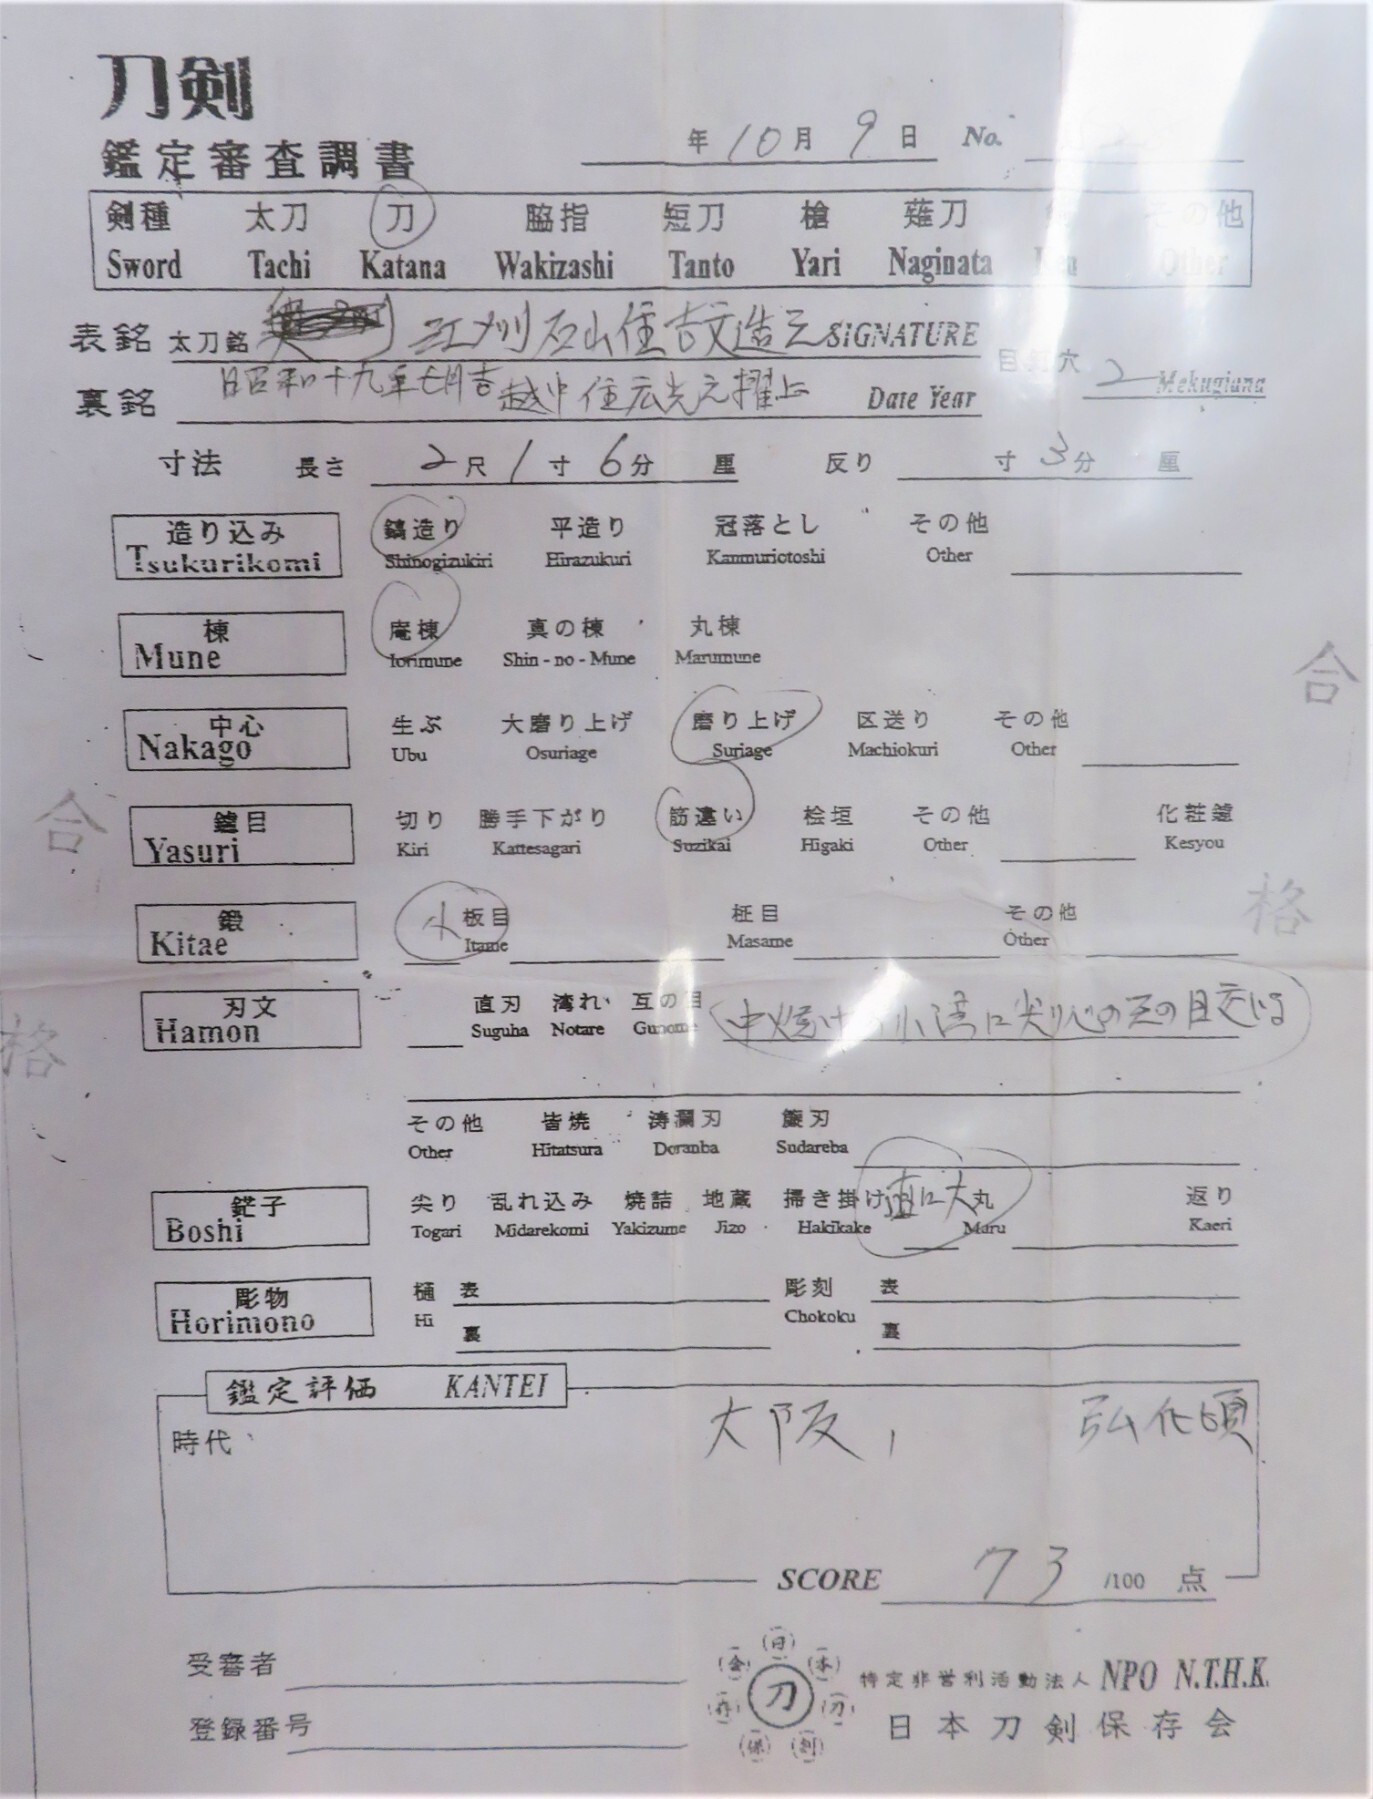 刀剣
鑑定審査調書
年 10 月 9 日 No.
剣種 太刀 刀 脇指 短刀 槍 薙刀 その他
Sword Tachi Katana Wakizashi Tanto Yari Naginata Ken Other
表銘 太刀銘 江州石山住 造之 SIGNATURE
目釘穴 2 Mekugiana
裏銘 昭和十九年七月吉 越中住広光之 上 Date Year
寸法 長さ 2 尺 1 寸 6 分 厘 反り 寸 3 分 厘
造り込み 鎬造り 平造り 冠落とし その他
Tsukurikomi Shinogizukiri Hirazukuri Kanmuriotoshi Other
棟 庵棟 真の棟 丸棟
Mune Iorimune Shin - no - Mune Marumune
合
中心 生ぶ 大磨り上げ 磨り上げ 区送り その他
Nakago Ubu Osuriage Suriage Machiokuri Other
合
鑢目 切り 勝手下がり 筋違い 桧垣 その他 化粧鑢
Yasuri Kiri Kattesagari Suzikai Higaki Other Kesyou
格
鍛 小 板目 柾目 その他
Kitae Itame Masame Other
格
刃文 直刃 湾れ 互の目 小湾に尖り心の互の目交じる
Hamon Suguha Notare Gunome
その他 皆焼 涛瀾刃 簾刃
Other Hitatsura Doranba Sudareba
鋩子 尖り 乱れ込み 焼詰 地蔵 掃き掛け 直に大 丸 返り
Boshi Togari Midarekomi Yakizume Jizo Hakikake Maru Kaeri
彫物 樋 表 彫刻 表
Horimono Hi 裏 Chokoku 裏
鑑定評価 KANTEI
時代 大阪, 弘化頃
SCORE 73 /100 点
受審者
登録番号
日本刀剣保存会
刀
特定非営利活動法人 NPO N.T.H.K.
日本刀剣保存会